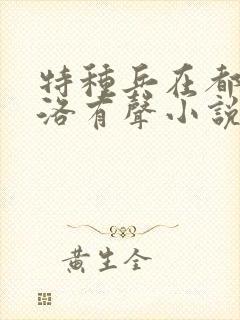 特種兵在都
洛有聲小說
黃生全